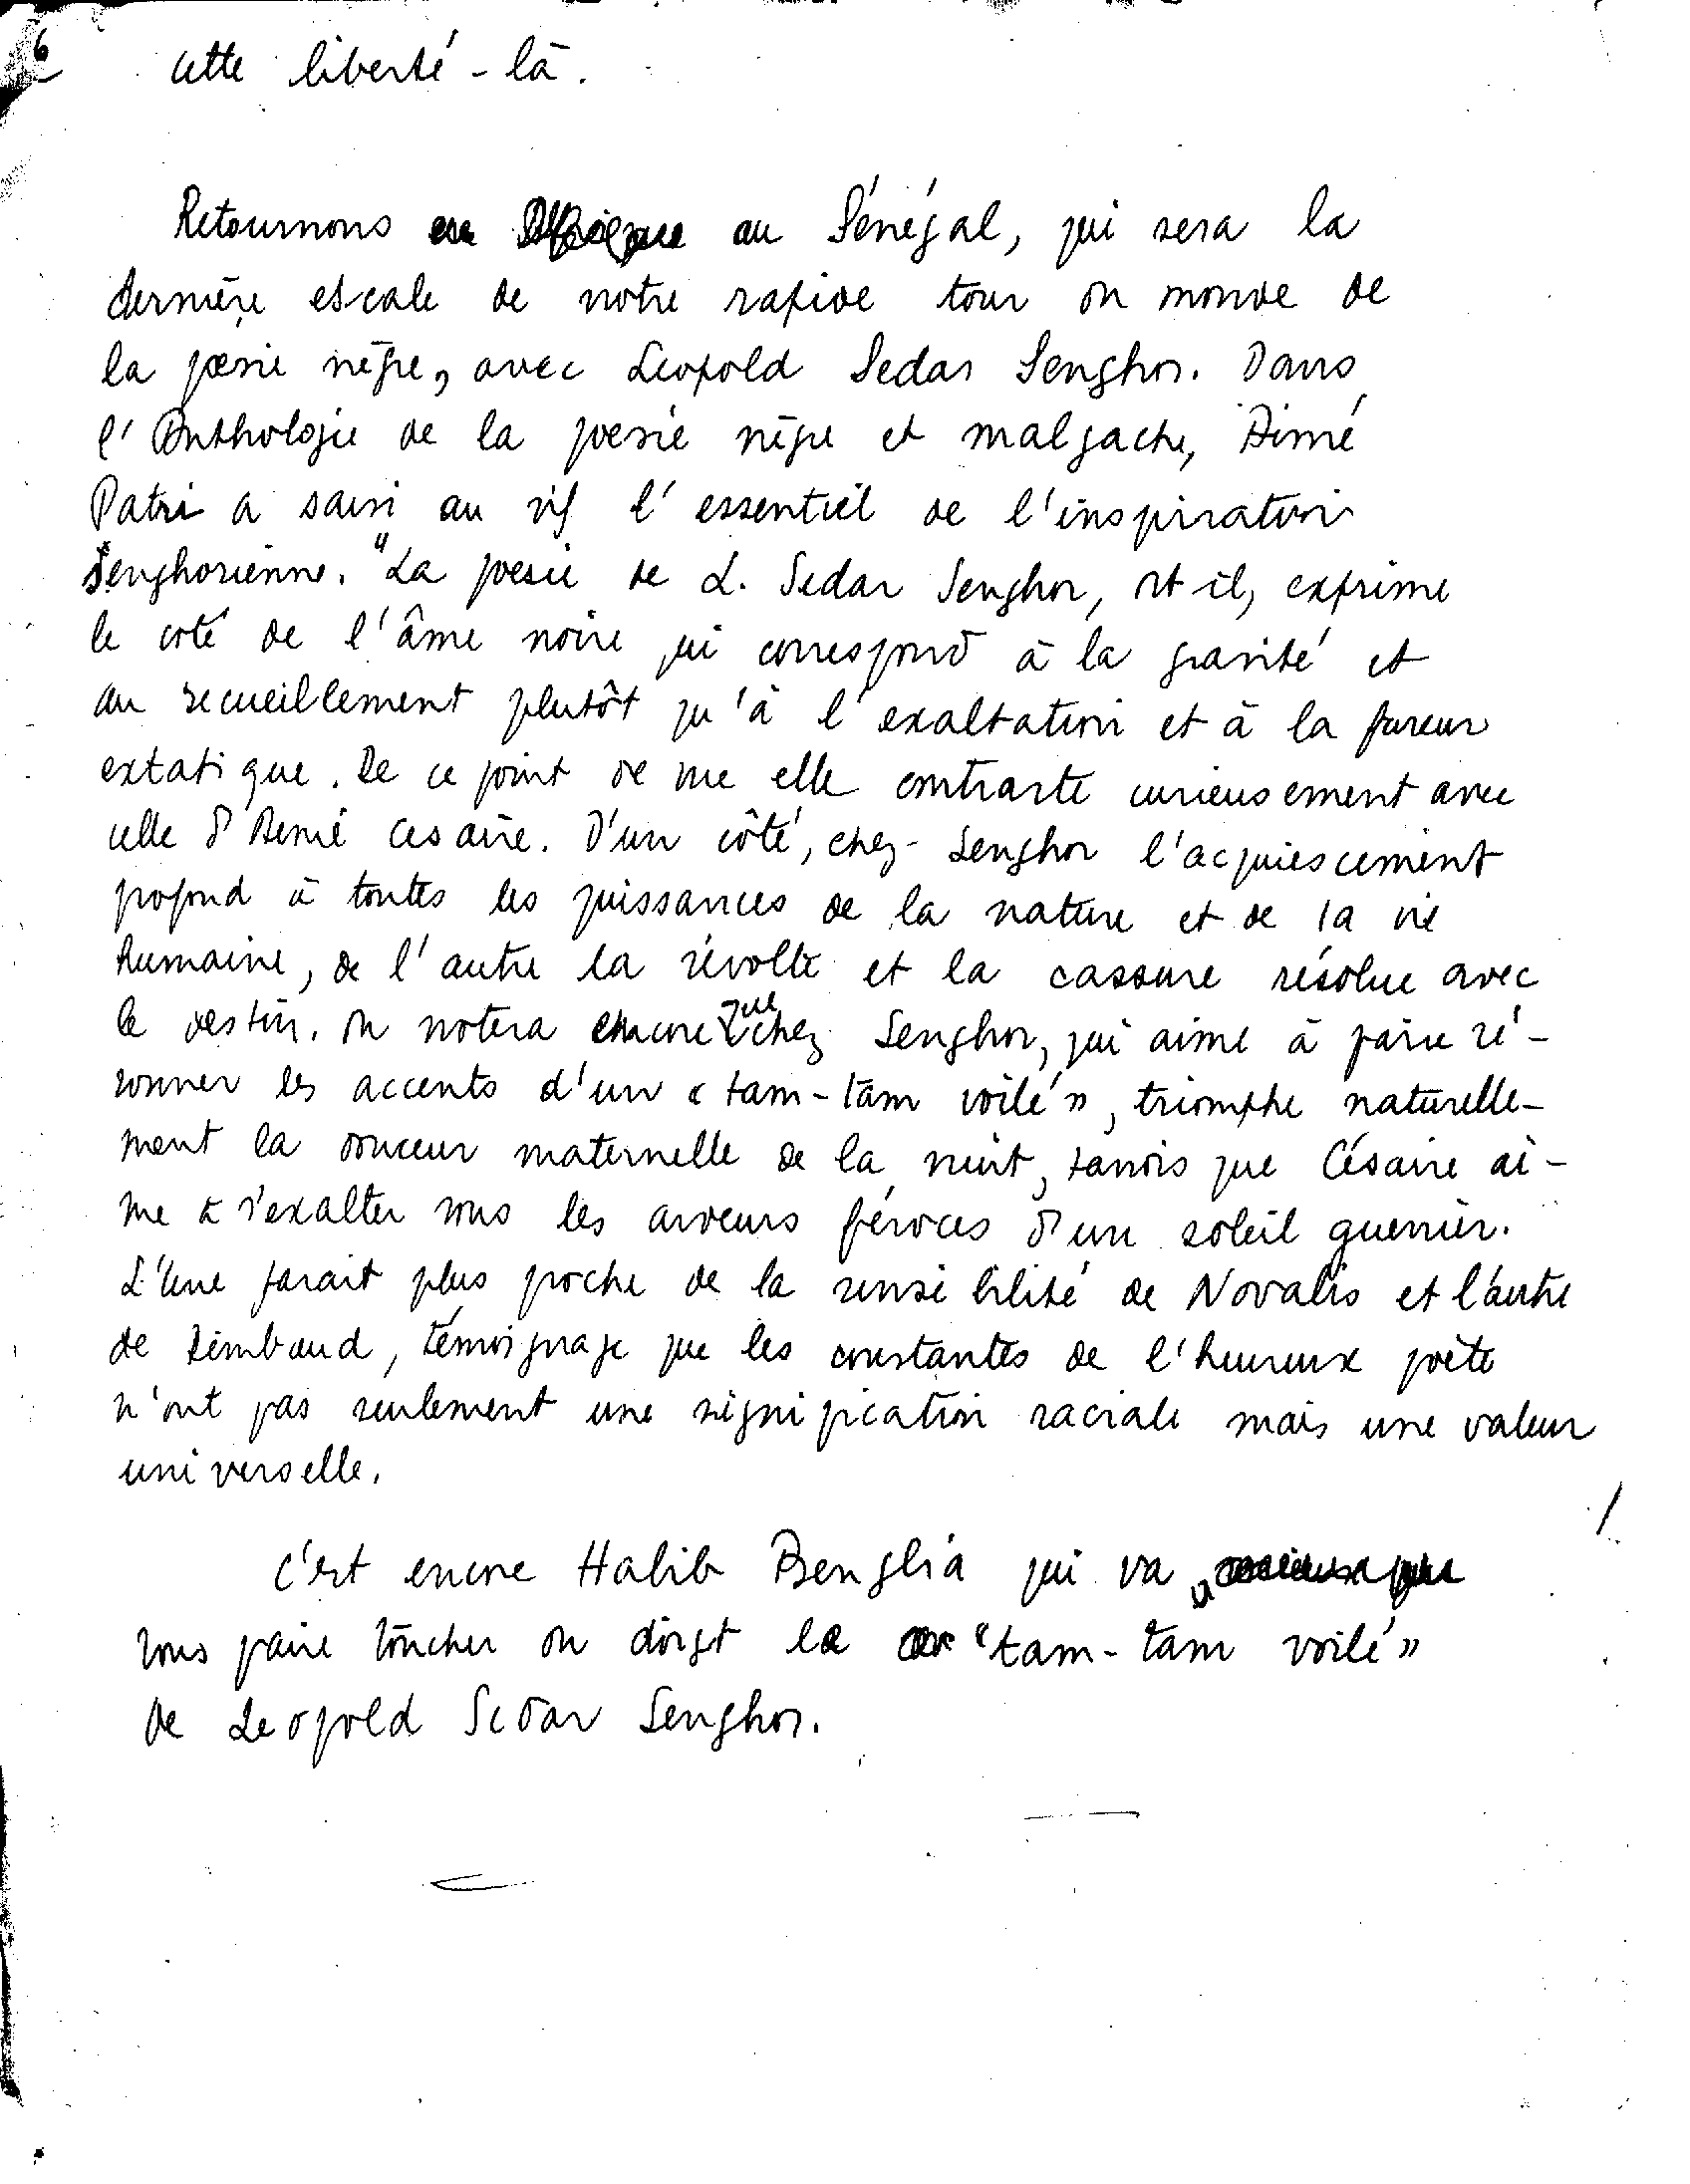 6
cette liberté-là.
Retournons en Afrique au Sénégal, qui sera la
dernière escale de notre rapide tour du monde de
la poesie nègre, avec Leopold Sedar Senghor. Dans
l'Anthologie de la poesie nègre et malgache, Aimé
Patri a saisi au vif l'essentiel de l'inspiration
senghorienne. "La poesie de L. Sedar Senghor, dit-il, exprime
le coté de l'âme noire qui correspond à la gravité et
au recueillement plutôt qu'à l'exaltation et à la fureur
extatique. De ce point de vue elle contraste curieusement avec
celle d'Aimé Cesaire. D'un côté, chez Senghor l'acquiescement
profond à toutes les puissances de la nature et de la vie
humaine, de l'autre la révolte et la cassure résolue avec
le destin. On notera encore que chez Senghor, qui aime à faire ré-
sonner les accents d'un « tam-tam voilé », triomphe naturelle-
ment la douceur maternelle de la nuit, tandis que Césaire ai-
me à s'exalter sous les ardeurs féroces d'un soleil guerrier.
L'une parait plus proche de la sensibilité de Novalis et l'autre
de Rimbaud, témoignage que les constantes de l'humeur poète
n'ont pas seulement une signification raciale mais une valeur
universelle.
C'est encore Habib Benglia qui va
vous faire toucher du doigt le "tam-tam voilé"
de Leopold Sedar Senghor.